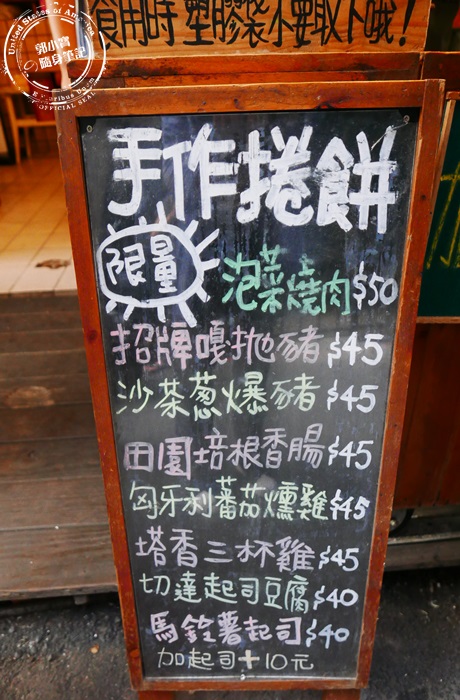 食用時 塑膠袋不要取下哦!
United States of America
郭小寶
の隨身筆記
E Pluribus Unum
OFFICIAL SEAL
手作捲餅
限量
泡菜燒肉$50
招牌嘎拋豬$45
沙茶蔥爆豬$45
田園培根香腸$45
匈牙利蕃茄燻雞$45
塔香三杯雞$45
切達起司豆腐$40
馬鈴薯起司$40
加起司+10元